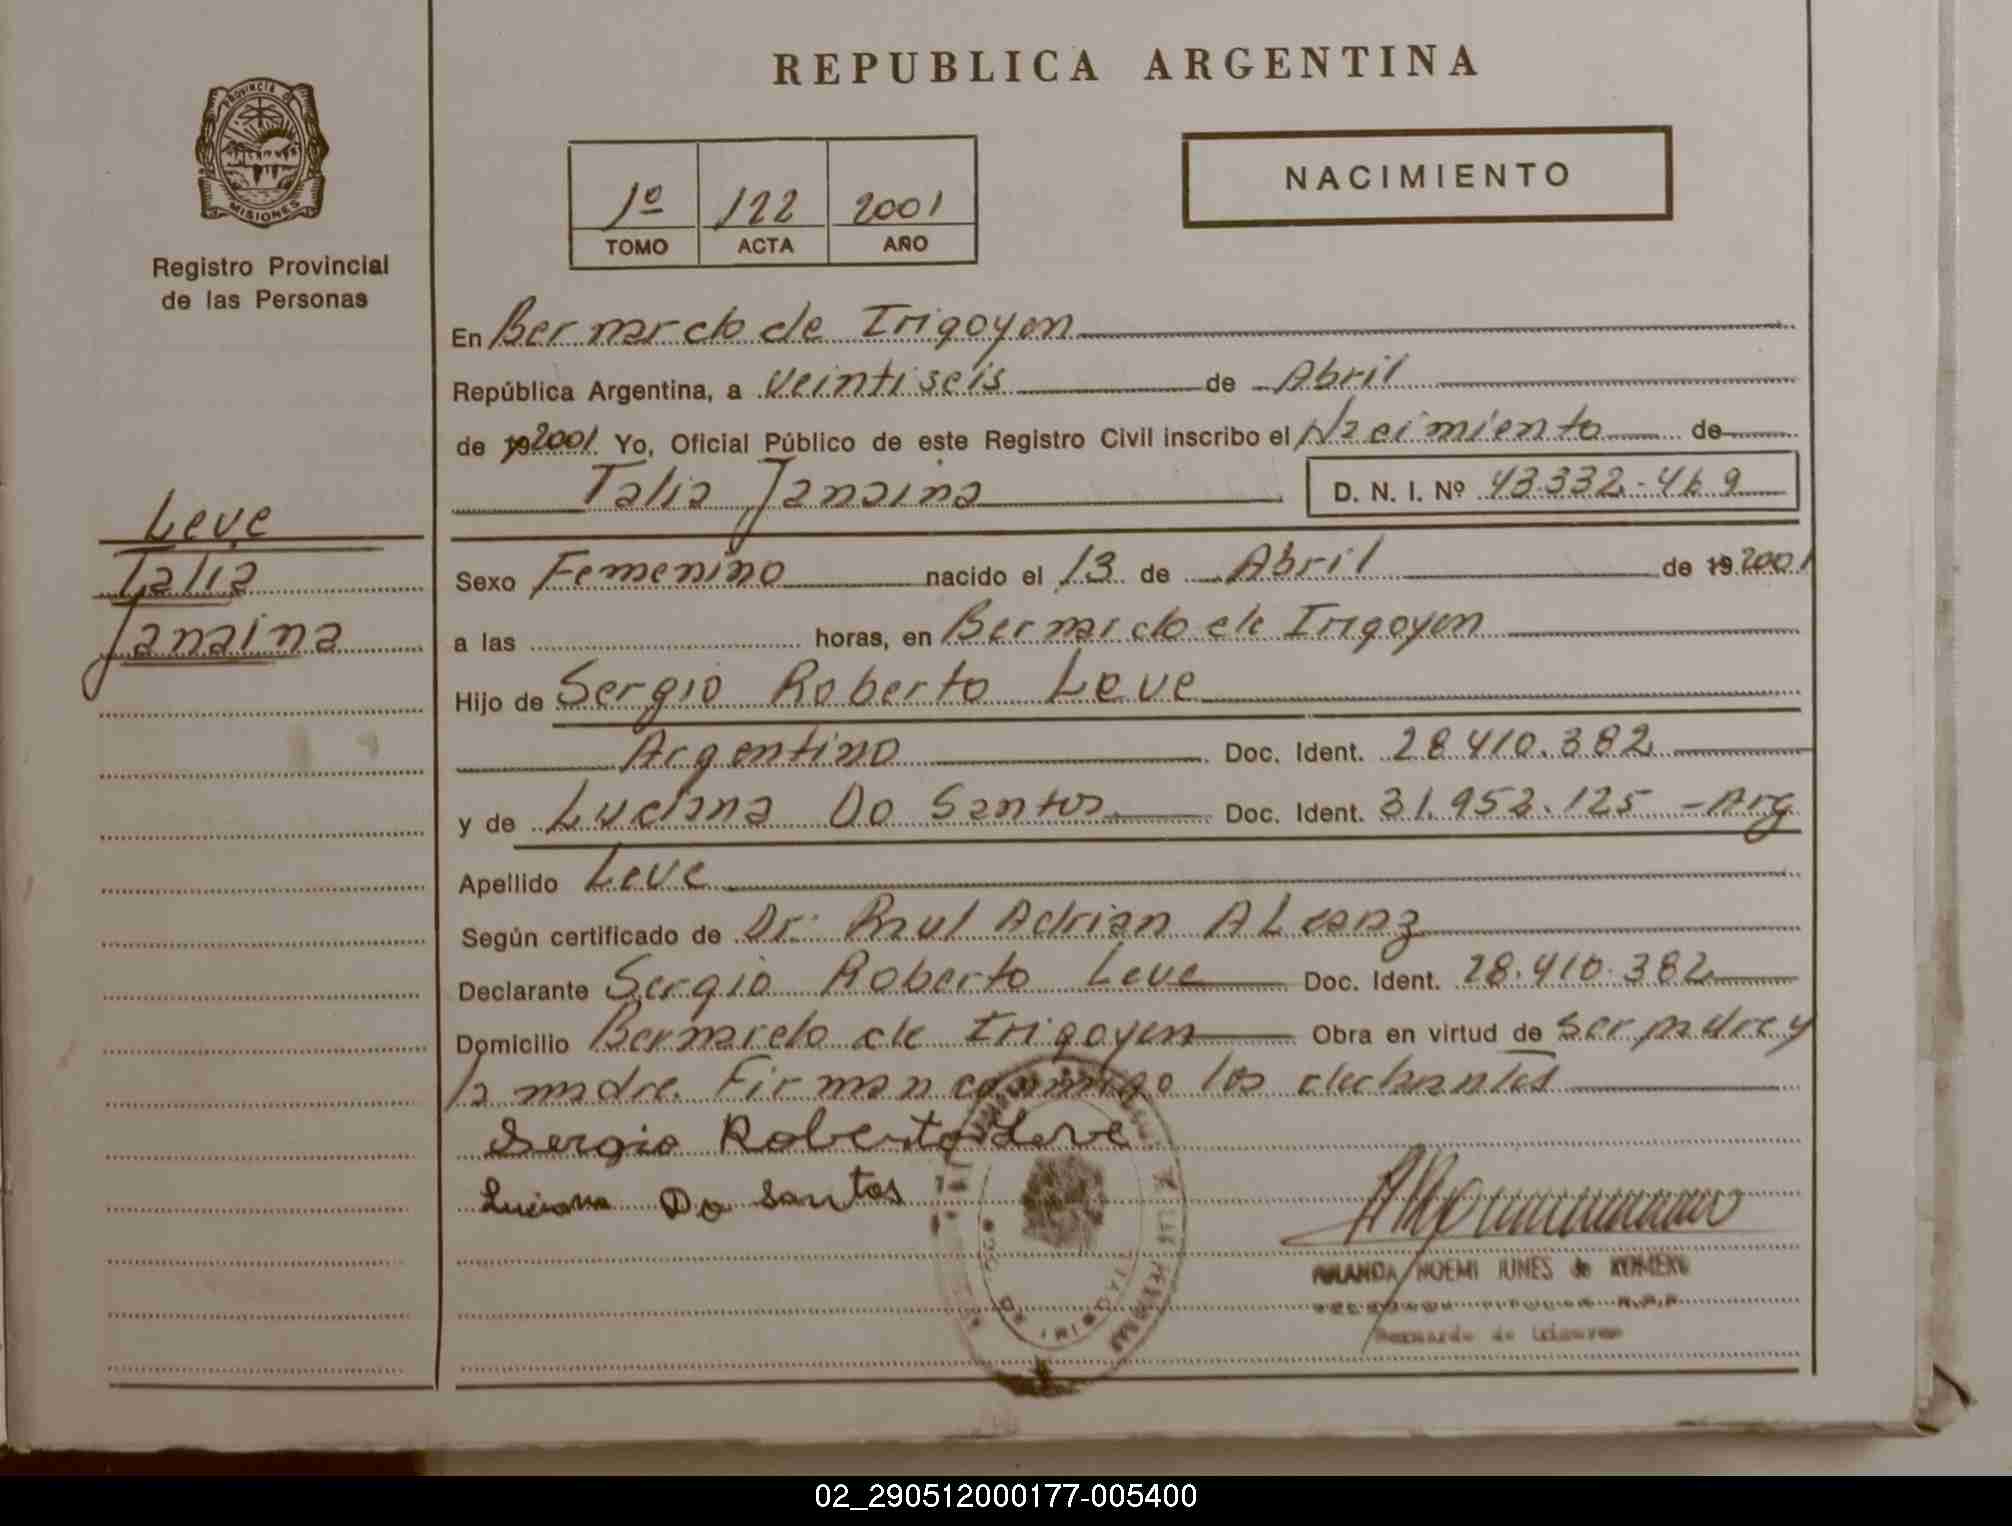 REPUBLICA ARGENTINA
PROVINCIA D
MISIONES
Registro Provincial
de las Personas
1º 122 2001
TOMO ACTA AÑO
NACIMIENTO
En Bernardo de Irigoyen
República Argentina, a veintiseis de Abril
de 192001 Yo, Oficial Público de este Registro Civil inscribo el Nacimiento de
Talia Janaina D. N. I. Nº 43.332.469
Leve
Talia
Janaina
Sexo Femenino nacido el 13 de Abril de 19 2001
a las horas, en Bernardo de Irigoyen
Hijo de Sergio Roberto Leve
Argentino Doc. Ident. 28.410.382
y de Luciana Do Santos Doc. Ident. 31.952.125 - Arg
Apellido Leve
Según certificado de Dr. Raul Adrian ALcanz
Declarante Sergio Roberto Leve Doc. Ident. 28.410.382
Domicilio Bernardo de Irigoyen Obra en virtud de ser padre y
la madre. Firman conmigo los declarantes
Sergio Roberto Leve
Luciana Do Santos
NOEMI JUNES de
Bernardo de Irigoyen
02_290512000177-005400